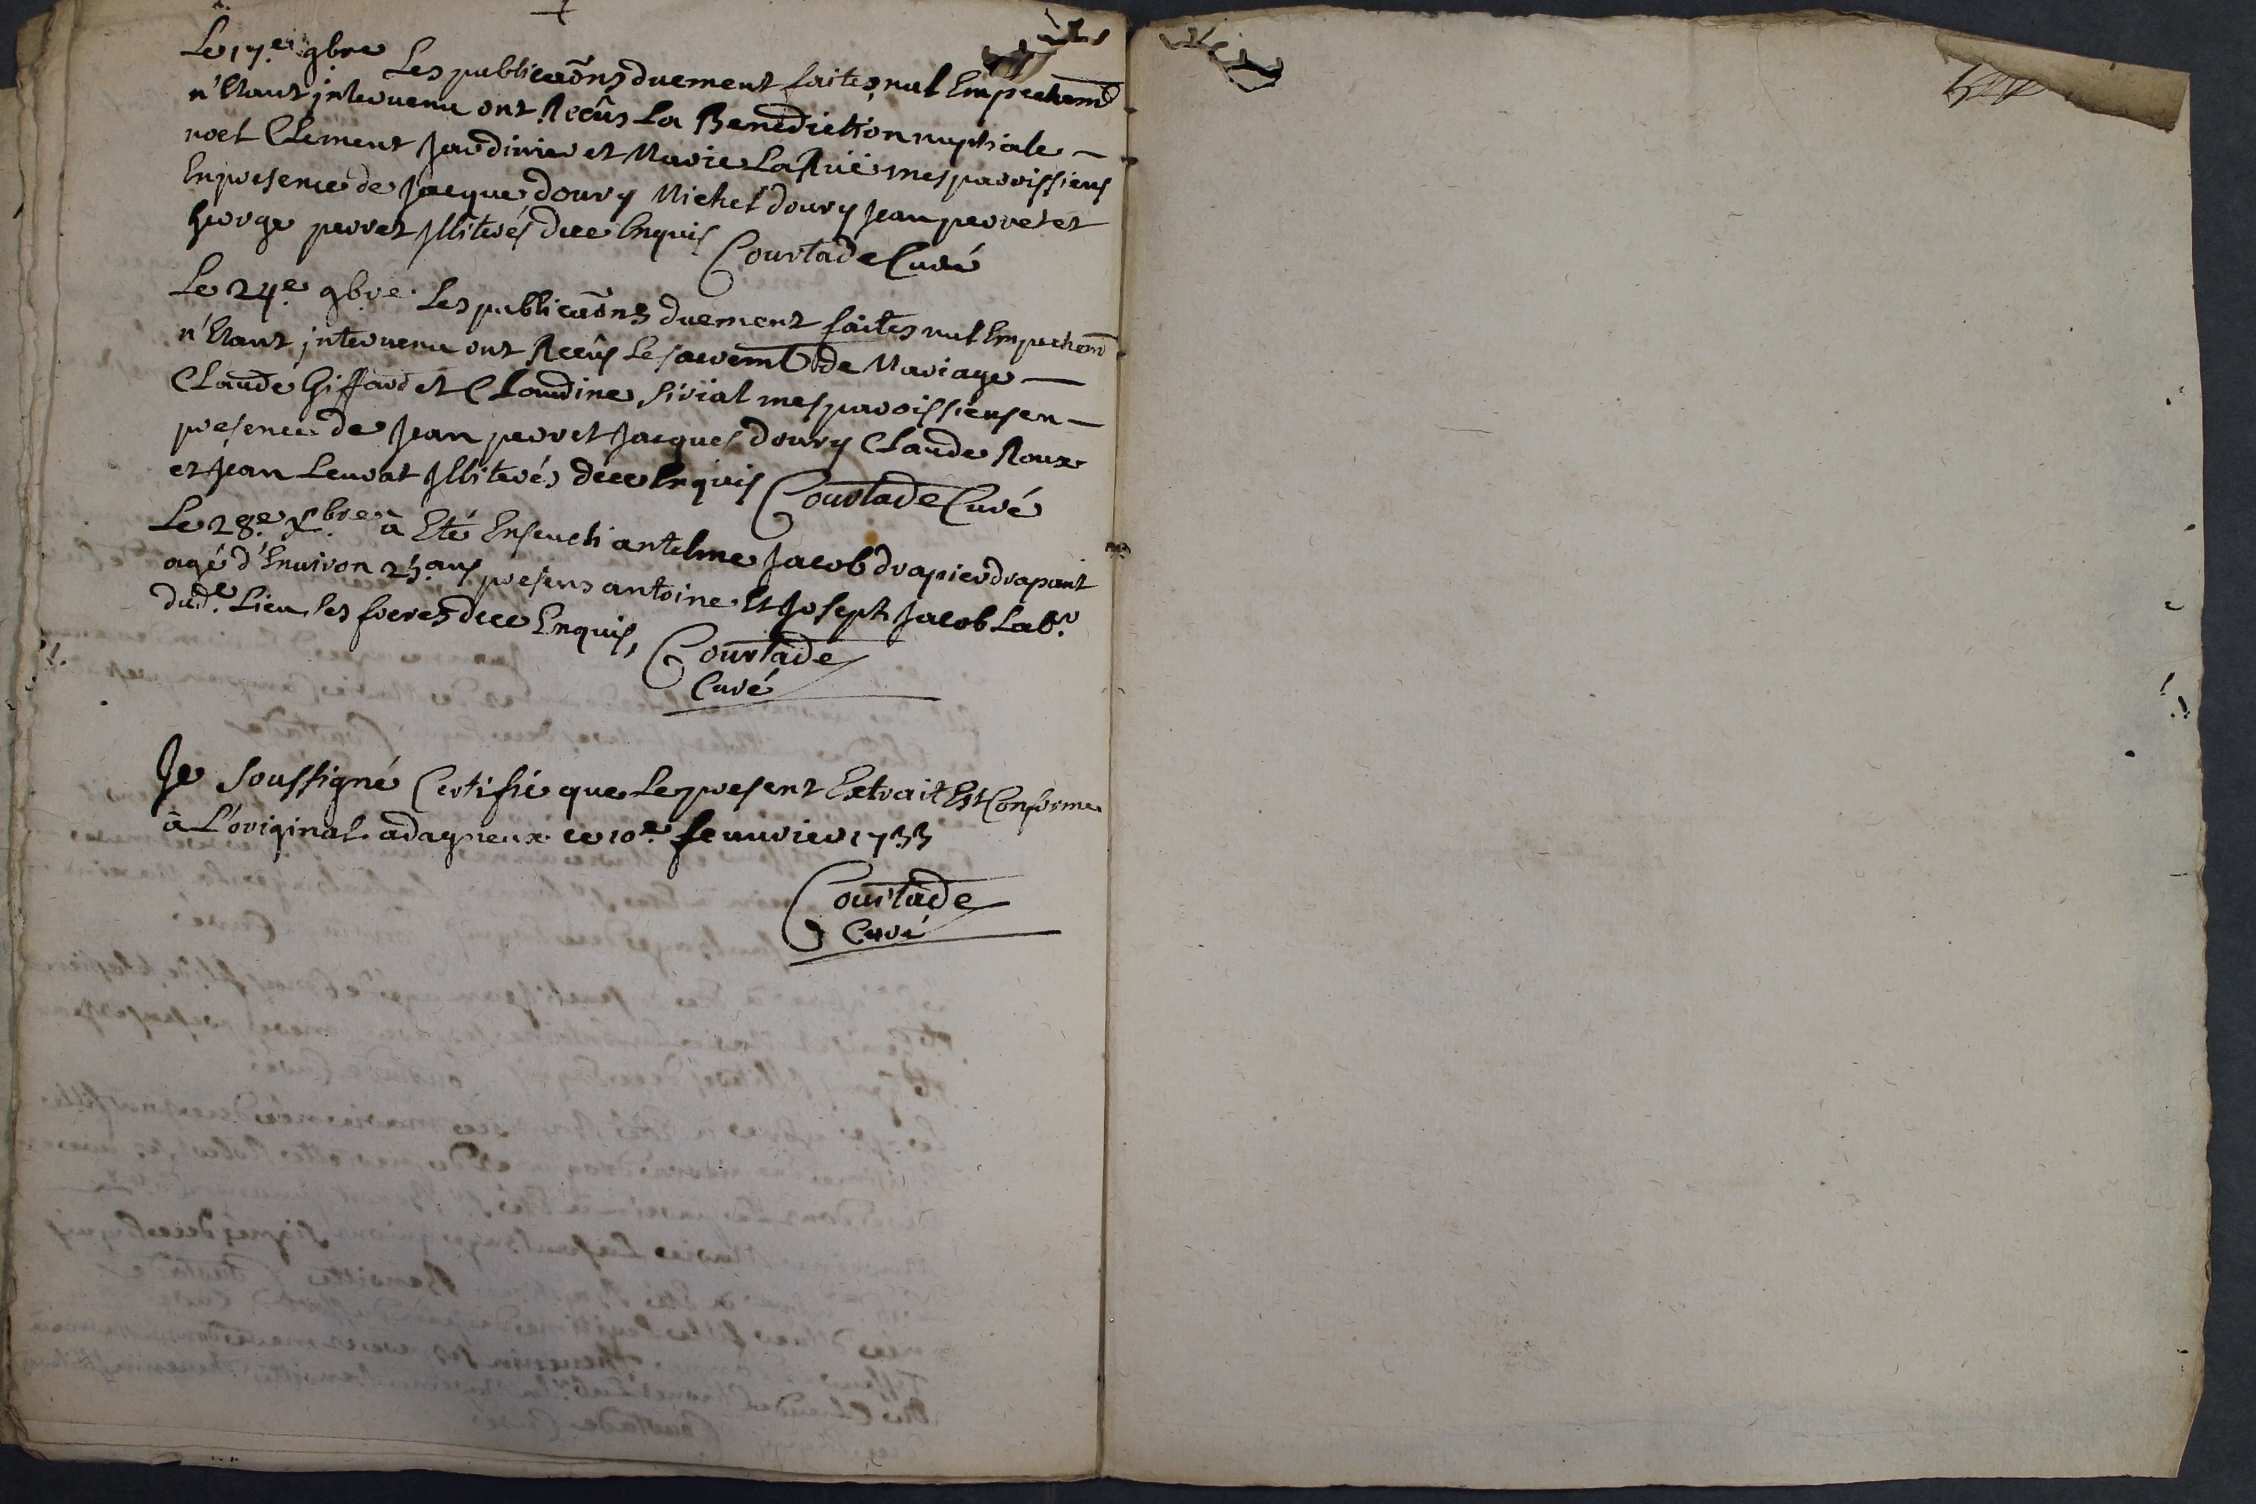 Le 17.e 9bre Les publicaõns duement faites, nul Empechem̃t
n'Etant intervenu ont Reçûs La Benediction nuptiale —
noel Clement Jardinier et Marie La Ruë mes paroissiens
En presence de Jacque doury Michel doury Jean perret et
George perret Illiterés dece Enquis Courtade Curé
Le 24.e 9bre. Les publicaõns duement faites nul Empechem̃t
n'Etant intervenu ont Reçûs Le sacrem̃t de Mariage —
Claude Giffard et Claudine Sivial mes paroissiens en —
presence de Jean perret Jacques doury Claude Roux
et Jean Levrat Illiterés dece Enquis Courtade Curé
Le 28.e Xbre. à Eté Enseveli antelme Jacob drapier drapant
agé d'Environ 25. ans presens antoine Et Joseph Jacob Lab.r
dud.t Lieu ses freres dece Enquis, Courtade
Curé
Je soussigné Certifie que Le present Extrait Est Conforme
à L'original adagneux ce 10.e fevrier 1733
Courtade
Curé